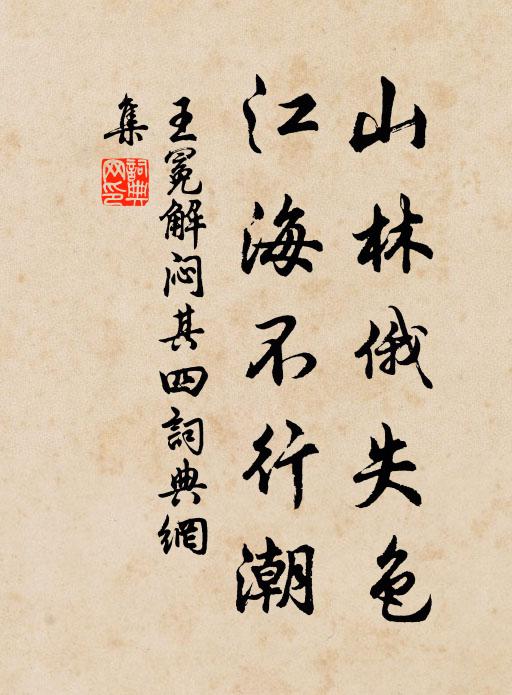 山林俄失色
江海不行潮
王冕解闷其四詞典網
集
詞典網印